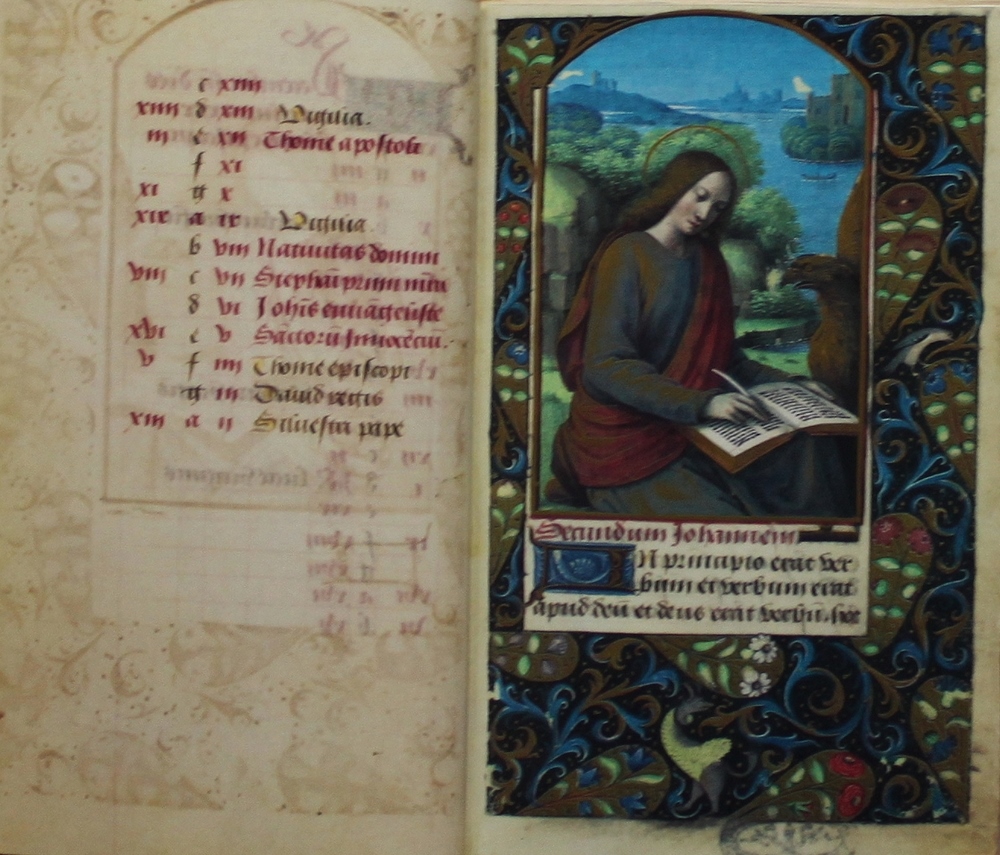 c xiiii
xiiii d xiii Vigilia.
iii e xii Thome apostoli
f xi
xi g x
xix a ix Vigilia.
b viii Natiuitas domini
viii c vii Stephani primi
d vi Johis euāgeliste
xvi e v Sāctorū Innocēciū.
v f iiii Thome episcopi
g iii Dauid regis
xiii a ii Siluestri pape
Secundum Johannem
In principio erat ver
bum et verbum erat
apud deū et deus erat verbū. hoc